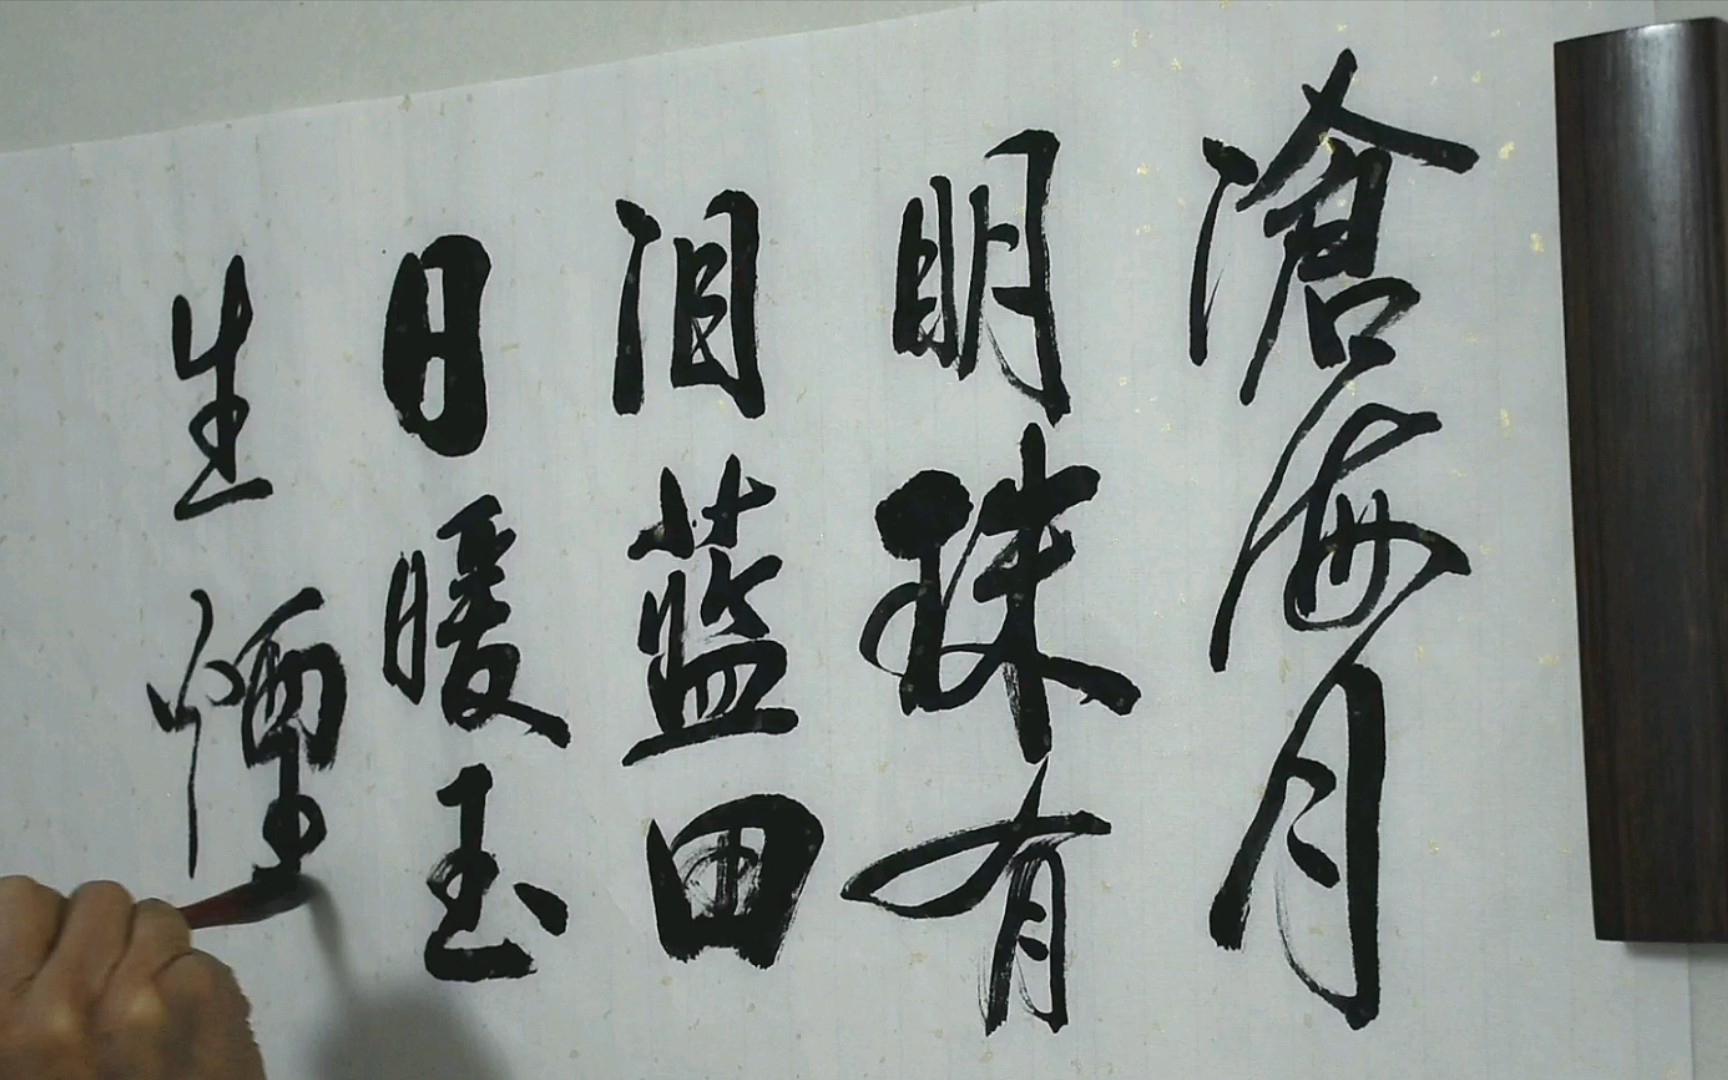 滄海月
明珠有
泪藍田
日暖玉
生煙